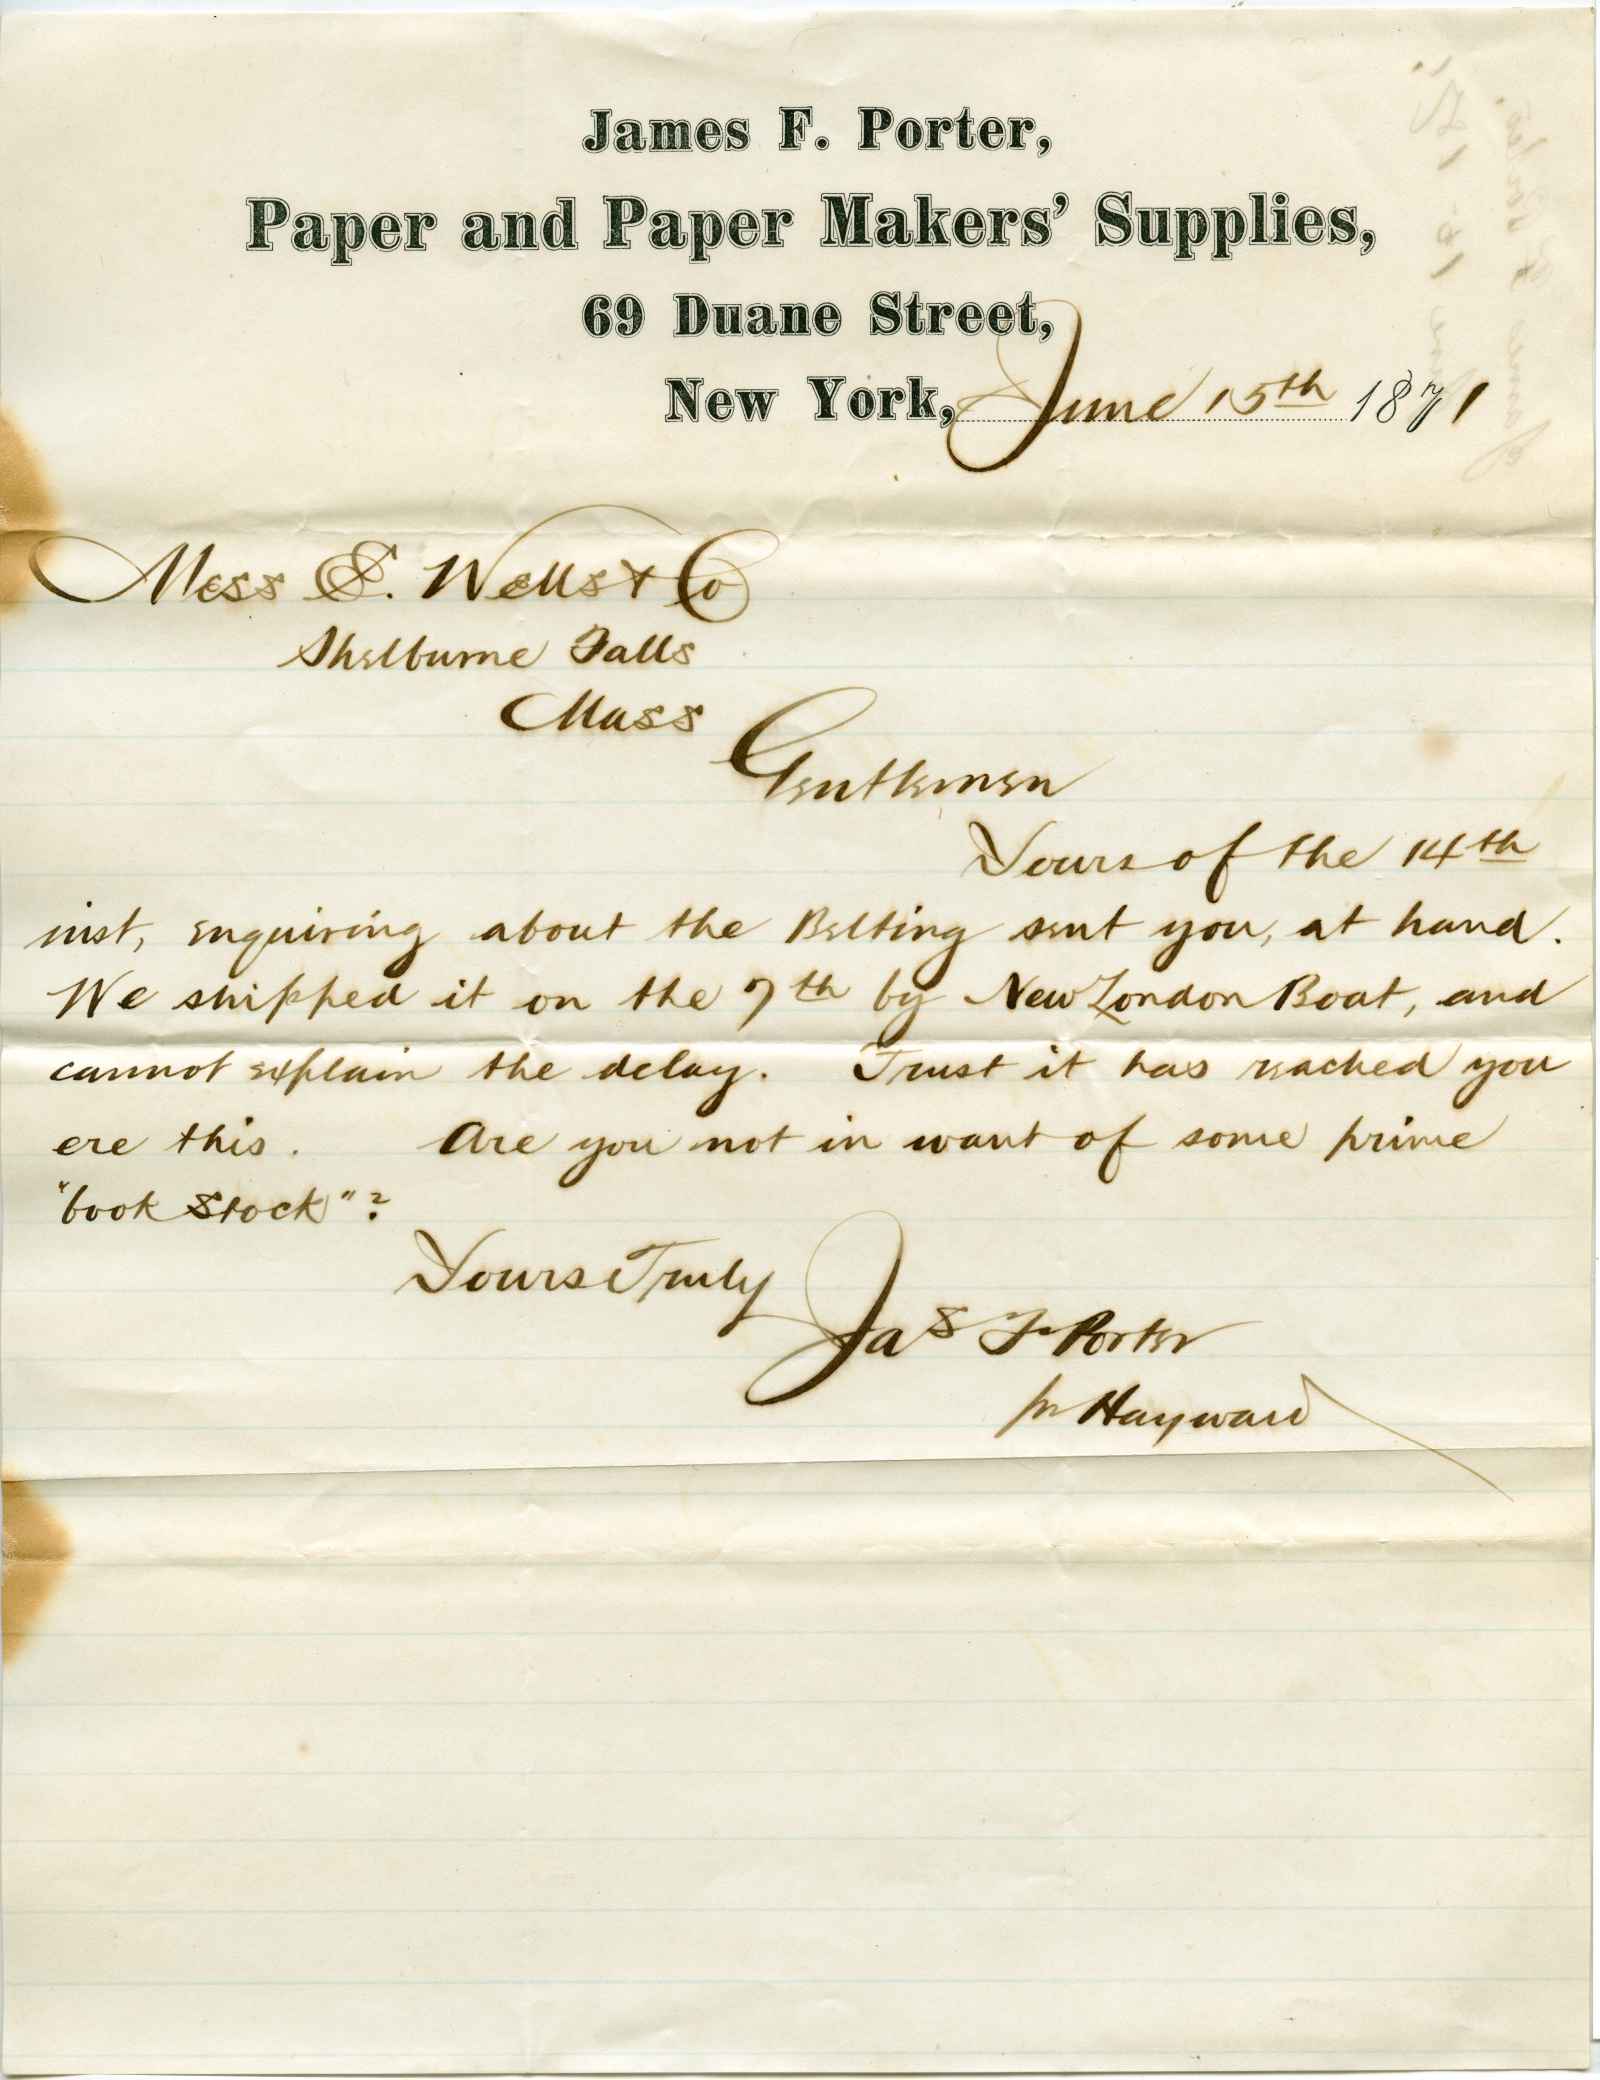 James F. Porter,
Paper and Paper Makers' Supplies,
69 Duane Street,
New York, June 15th 1871
Mess E. Wells & Co
Shelburne Falls
Mass
Gentlemen
Yours of the 14th
inst, enquiring about the Belting sent you, at hand.
We shipped it on the 7th by New London Boat, and
cannot explain the delay. Trust it has reached you
ere this. Are you not in want of some prime
"book stock"?
Yours Truly
Jas F Porter
pr Hayward